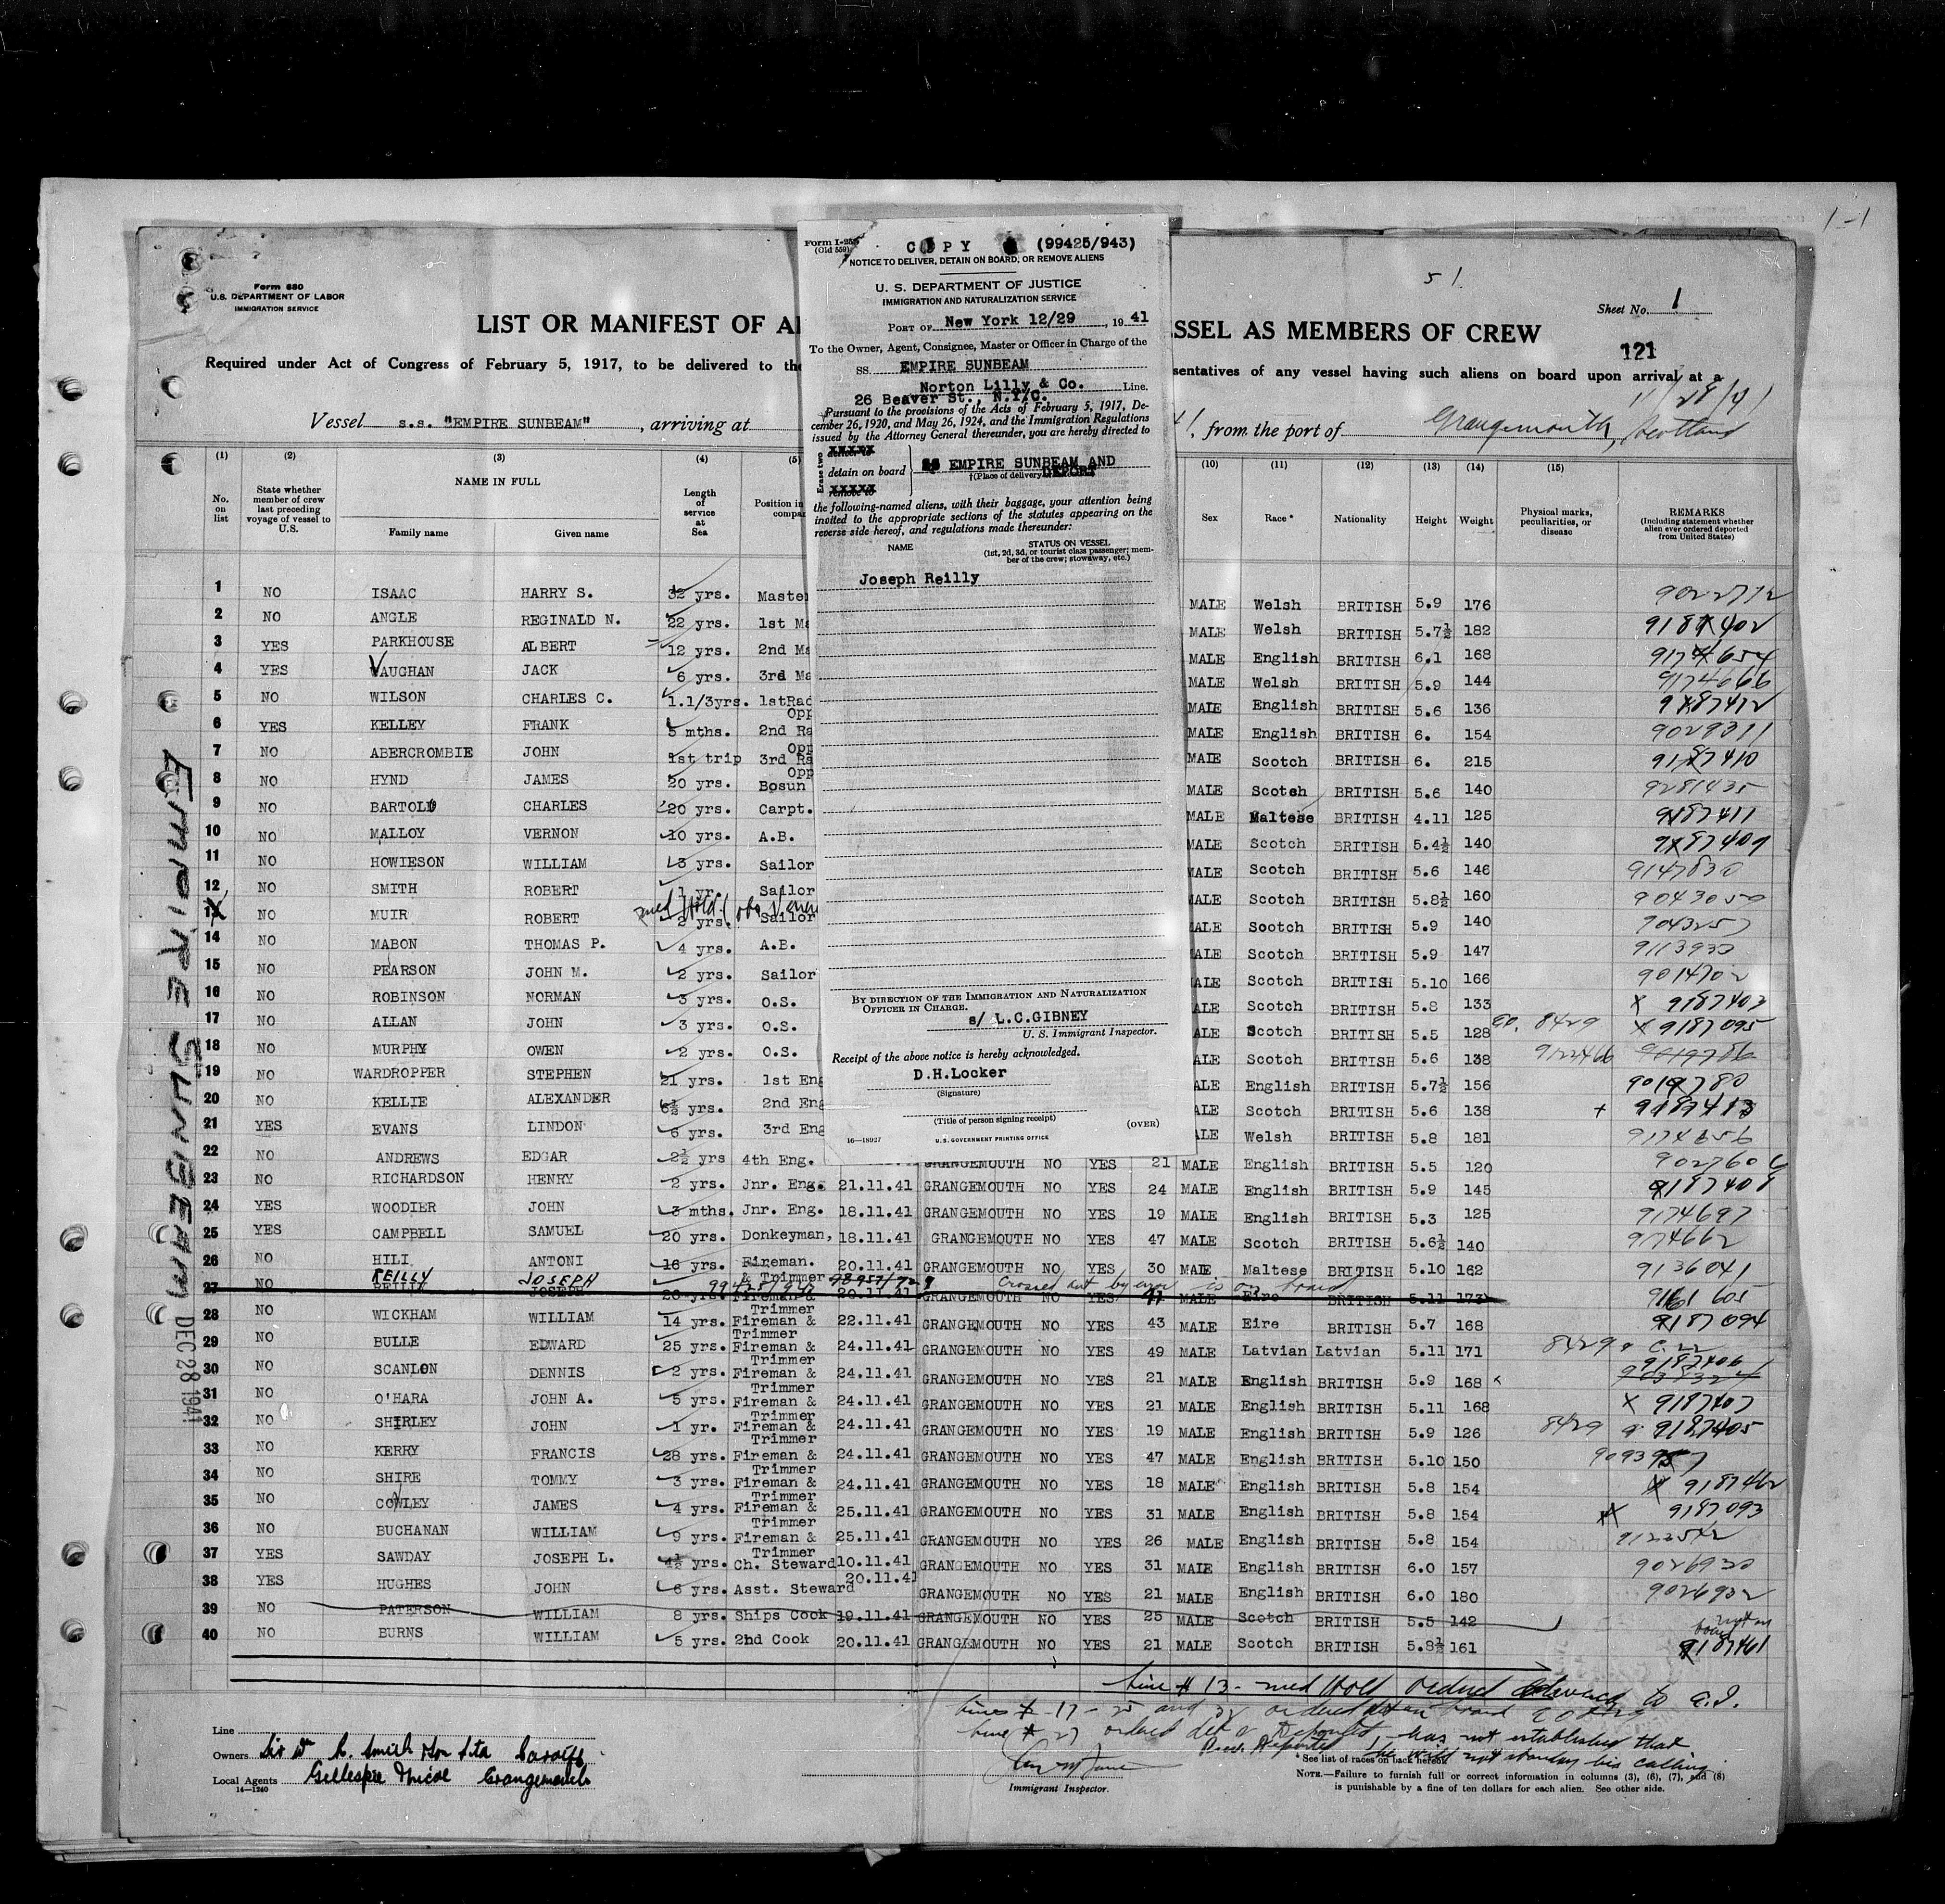 1-1
Form 680
U.S. DEPARTMENT OF LABOR
IMMIGRATION SERVICE
51
Sheet No. 1
LIST OR MANIFEST OF AL
SSEL AS MEMBERS OF CREW
121
Required under Act of Congress of February 5, 1917, to be delivered to the
sentatives of any vessel having such aliens on board upon arrival at a
Vessel s.s. "EMPIRE SUNBEAM", arriving at
, from the port of Grangemouth, Scotland
Form I-259
(Old 559)
COPY (99425/943)
NOTICE TO DELIVER, DETAIN ON BOARD, OR REMOVE ALIENS
U. S. DEPARTMENT OF JUSTICE
IMMIGRATION AND NATURALIZATION SERVICE
PORT OF New York 12/29, 19 41
To the Owner, Agent, Consignee, Master or Officer in Charge of the
SS. EMPIRE SUNBEAM
Norton Lilly & Co. Line.
26 Beaver St., N.Y.C.
Pursuant to the provisions of the Acts of February 5, 1917, De-
cember 26, 1920, and May 26, 1924, and the Immigration Regulations
issued by the Attorney General thereunder, you are hereby directed to
Erase two
deliver to
detain on board
remove to
SS EMPIRE SUNBEAM AND
†(Place of delivery) DEPORT
the following-named aliens, with their baggage, your attention being
invited to the appropriate sections of the statutes appearing on the
reverse side hereof, and regulations made thereunder:
NAME
STATUS ON VESSEL
(1st, 2d, 3d, or tourist class passenger; mem-
ber of the crew; stowaway, etc.)
Joseph Reilly
BY DIRECTION OF THE IMMIGRATION AND NATURALIZATION
OFFICER IN CHARGE.
s/ L.C.GIBNEY
U. S. Immigrant Inspector.
Receipt of the above notice is hereby acknowledged.
D.H.Locker
(Signature)
(Title of person signing receipt)
(OVER)
16—18927
U.S. GOVERNMENT PRINTING OFFICE
(1) (2) (3) (4) (5) (10) (11) (12) (13) (14) (15)
No. on list
State whether member of crew last preceding voyage of vessel to U.S.
NAME IN FULL
Family name
Given name
Length of service at Sea
Position in
compa
Sex
Race*
Nationality
Height
Weight
Physical marks, peculiarities, or disease
REMARKS
(Including statement whether alien ever ordered deported from United States)
1 NO ISAAC HARRY S. 32 yrs. Maste MALE Welsh BRITISH 5.9 176 9022712
2 NO ANGLE REGINALD N. 22 yrs. 1st Ma MALE Welsh BRITISH 5.7½ 182 9187402
3 YES PARKHOUSE ALBERT 12 yrs. 2nd Ma MALE English BRITISH 6.1 168 9174654
4 YES VAUGHAN JACK 6 yrs. 3rd Ma MALE Welsh BRITISH 5.9 144 9174666
5 NO WILSON CHARLES C. 1.1/3yrs. 1stRad Opp MALE English BRITISH 5.6 136 9187412
6 YES KELLEY FRANK 5 mths. 2nd Ra Opp MALE English BRITISH 6. 154 9029311
7 NO ABERCROMBIE JOHN 1st trip 3rd Ra Opp MALE Scotch BRITISH 6. 215 9187410
8 NO HYND JAMES 20 yrs. Bosun MALE Scotch BRITISH 5.6 140 9281435
9 NO BARTOLO CHARLES 20 yrs. Carpt. MALE Maltese BRITISH 4.11 125 9187411
10 NO MALLOY VERNON 10 yrs. A.B. MALE Scotch BRITISH 5.4½ 140 9187409
11 NO HOWIESON WILLIAM 3 yrs. Sailor MALE Scotch BRITISH 5.6 146 9147830
12 NO SMITH ROBERT 1 yr. Sailor MALE Scotch BRITISH 5.8½ 160 9043050
med Hold
13 NO MUIR ROBERT 2 yrs. Sailor ALE Scotch BRITISH 5.9 140 9043257
14 NO MABON THOMAS P. 4 yrs. A.B. ALE Scotch BRITISH 5.9 147 9113933
15 NO PEARSON JOHN M. 2 yrs. Sailor ALE Scotch BRITISH 5.10 166 9014702
16 NO ROBINSON NORMAN 3 yrs. O.S. ALE Scotch BRITISH 5.8 133 X 9187403
17 NO ALLAN JOHN 3 yrs. O.S. ALE Scotch BRITISH 5.5 128 8429 X 9187095
18 NO MURPHY OWEN 2 yrs. O.S. ALE Scotch BRITISH 5.6 138 9122466 9019786
19 NO WARDROPPER STEPHEN 21 yrs. 1st Eng ALE English BRITISH 5.7½ 156 9019780
20 NO KELLIE ALEXANDER 6½ yrs. 2nd Eng ALE Scotch BRITISH 5.6 138 + 9187413
21 YES EVANS LINDON 6 yrs. 3rd Eng ALE Welsh BRITISH 5.8 181 9174656
22 NO ANDREWS EDGAR 2½ yrs 4th Eng. GRANGEMOUTH NO YES 21 MALE English BRITISH 5.5 120 9027606
23 NO RICHARDSON HENRY 2 yrs. Jnr. Eng. 21.11.41 GRANGEMOUTH NO YES 24 MALE English BRITISH 5.9 145 9187408
24 YES WOODIER JOHN 3 mths. Jnr. Eng. 18.11.41 GRANGEMOUTH NO YES 19 MALE English BRITISH 5.3 125 9174697
25 YES CAMPBELL SAMUEL 20 yrs. Donkeyman, 18.11.41 GRANGEMOUTH NO YES 47 MALE Scotch BRITISH 5.6½ 140 9174662
26 NO HILI ANTONI 16 yrs. Fireman. 20.11.41 GRANGEMOUTH NO YES 30 MALE Maltese BRITISH 5.10 162 9136041
REILLY JOSEPH & Trimmer 99425/943 98957/929 Crossed out by error is on board
27 NO REILLY JOSEPH 20 yrs. Fireman & 20.11.41 GRANGEMOUTH NO YES 41 MALE Eire BRITISH 5.11 173 9161605
28 NO WICKHAM WILLIAM 14 yrs. Trimmer Fireman & 22.11.41 GRANGEMOUTH NO YES 43 MALE Eire BRITISH 5.7 168 9187094
29 NO BULLE EDWARD 25 yrs. Trimmer Fireman & 24.11.41 GRANGEMOUTH NO YES 49 MALE Latvian Latvian 5.11 171 8429
30 NO SCANLON DENNIS 2 yrs. Trimmer Fireman & 24.11.41 GRANGEMOUTH NO YES 21 MALE English BRITISH 5.9 168 9187406
31 NO O'HARA JOHN A. 5 yrs. Trimmer Fireman & 24.11.41 GRANGEMOUTH NO YES 21 MALE English BRITISH 5.11 168 X 9187407
32 NO SHIRLEY JOHN 1 yr. Trimmer Fireman & 24.11.41 GRANGEMOUTH NO YES 19 MALE English BRITISH 5.9 126 8429 9187405
33 NO KERRY FRANCIS 28 yrs. Trimmer Fireman & 24.11.41 GRANGEMOUTH NO YES 47 MALE English BRITISH 5.10 150
34 NO SHIRE TOMMY 3 yrs. Trimmer Fireman & 24.11.41 GRANGEMOUTH NO YES 18 MALE English BRITISH 5.8 154 X 9187462
35 NO COWLEY JAMES 4 yrs. Trimmer Fireman & 25.11.41 GRANGEMOUTH NO YES 31 MALE English BRITISH 5.8 154 9187093
36 NO BUCHANAN WILLIAM 9 yrs. Trimmer Fireman & 25.11.41 GRANGEMOUTH NO YES 26 MALE English BRITISH 5.8 154 9123542
37 YES SAWDAY JOSEPH L. 4½ yrs. Trimmer Ch. Steward 10.11.41 GRANGEMOUTH NO YES 31 MALE English BRITISH 6.0 157 9026930
38 YES HUGHES JOHN 6 yrs. Asst. Steward 20.11.41 GRANGEMOUTH NO YES 21 MALE English BRITISH 6.0 180 9026932
39 NO PATERSON WILLIAM 8 yrs. Ships Cook 19.11.41 GRANGEMOUTH NO YES 25 MALE Scotch BRITISH 5.5 142 not on board
40 NO BURNS WILLIAM 5 yrs. 2nd Cook 20.11.41 GRANGEMOUTH NO YES 21 MALE Scotch BRITISH 5.8½ 161 9187461
EMPIRE SUNBEAM
DEC 28 1941
Line # 13 - med Hold ordered
Lines # 17 - 25 and 32 ordered det on board
Line # 27 ordered det & Deported, has not established that
he would not abandon his calling
Line
Owners
Local Agents Gillespie Nicol Grangemouth
14—1240
Immigrant Inspector.
* See list of races on back hereof.
NOTE.—Failure to furnish full or correct information in columns (3), (6), (7), and (8)
is punishable by a fine of ten dollars for each alien. See other side.